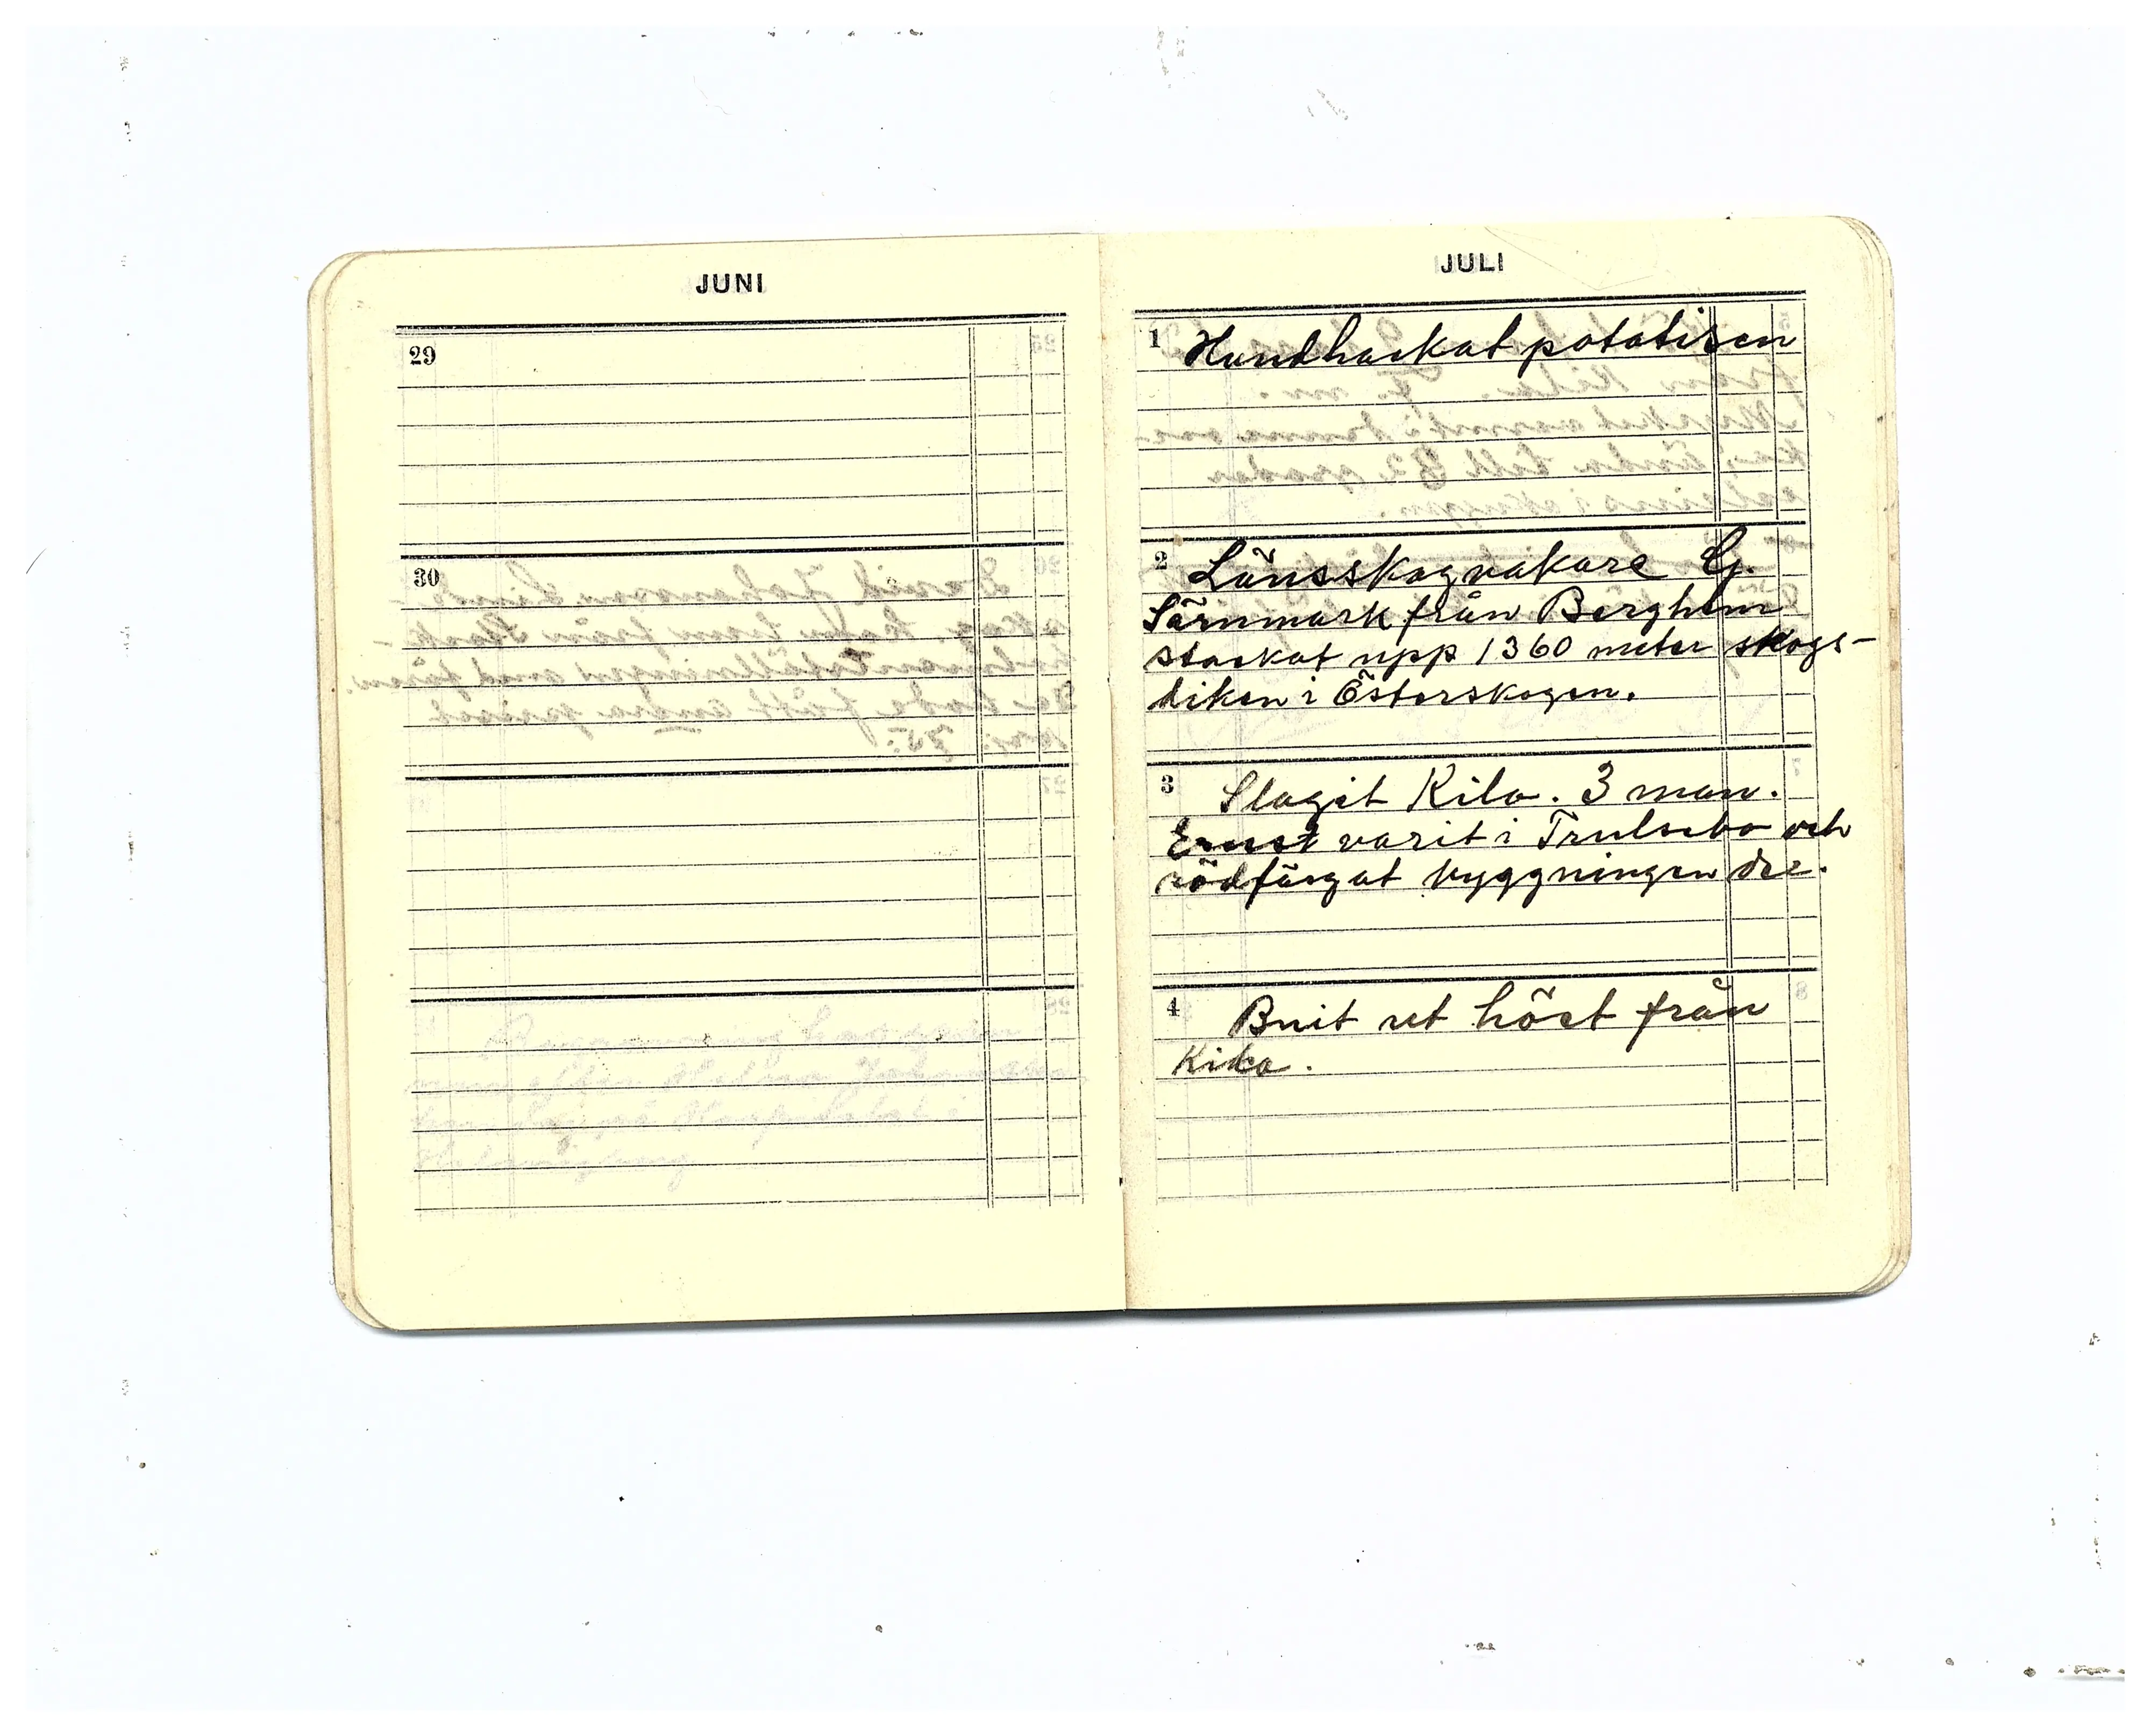 JUNI
29
30
JULI
1 Handhackat potatisen
2 Länsskogvakare G.
Särnmark från Berghem
stackat upp 1360 meter skogs-
diken i Österskogen.
3 Slagit Kila. 3 man.
Ernst varit i Trulsebo och
rödfärgat byggningen där.
4 höet från
Kila.